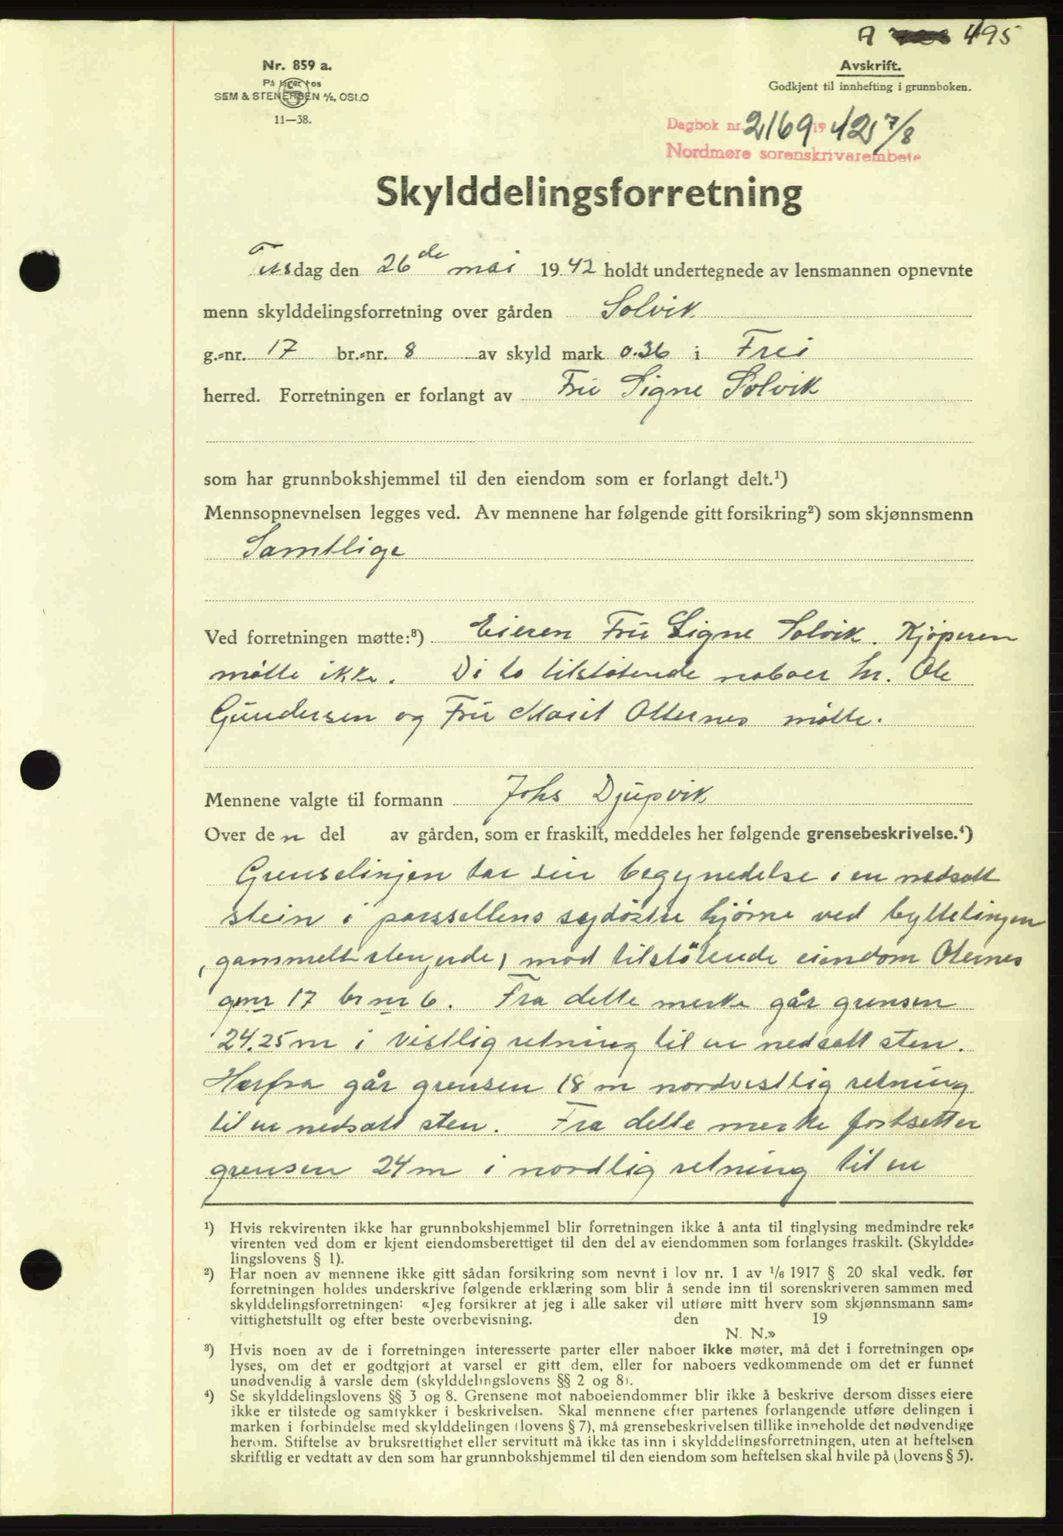 A 495
Nr. 859 a.
På lager hos
SEM & STENERSEN A/S, OSLO
11—38.
Avskrift.
Godkjent til innhefting i grunnboken.
Dagbok nr. 2169 1942 7/8
Nordmøre sorenskriverembete
Skylddelingsforretning
Tirsdag den 26de mai 1942 holdt undertegnede av lensmannen opnevnte
menn skylddelingsforretning over gården Solvik
g.-nr. 17 br.-nr. 8 av skyld mark 0.36 i Frei
herred. Forretningen er forlangt av Fru Signe Solvik
som har grunnbokshjemmel til den eiendom som er forlangt delt.¹)
Mennsopnevnelsen legges ved. Av mennene har følgende gitt forsikring²) som skjønnsmenn
Samtlige
Ved forretningen møtte:³) Eieren Fru Signe Solvik. Kjøperen
møtte ikke. Di to tilstøtende naboer hr. Ole
Gundersen og Fru Marit Otternes møtte.
Mennene valgte til formann Johs Djupvik
Over den del av gården, som er fraskilt, meddeles her følgende grensebeskrivelse.⁴)
Grenselinjen tar sin begynedelse i en nedsatt
stein i parsellens sydøstre hjørne ved byttelinjen
(gammelt stengjerde) mod tilstøtende eiendom Oternes
gnr 17 br nr 6. Fra dette merke går grensen
24.25 m i vestlig retning til en nedsatt sten.
Herfra går grensen 18 m nordvestlig retning
til en nedsatt sten. Fra dette merke fortsetter
grensen 24 m i nordlig retning til en
¹) Hvis rekvirenten ikke har grunnbokshjemmel blir forretningen ikke å anta til tinglysing medmindre rek-
virenten ved dom er kjent eiendomsberettiget til den del av eiendommen som forlanges fraskilt. (Skyldde-
lingslovens § 1).
²) Har noen av mennene ikke gitt sådan forsikring som nevnt i lov nr. 1 av 1/6 1917 § 20 skal vedk. før
forretningen holdes underskrive følgende erklæring som blir å sende inn til sorenskriveren sammen med
skylddelingsforretningen: «Jeg forsikrer at jeg i alle saker vil utføre mitt hverv som skjønnsmann sam-
vittighetsfullt og efter beste overbevisning. den 19
N. N.»
³) Hvis noen av de i forretningen interesserte parter eller naboer ikke møter, må det i forretningen op-
lyses, om det er godtgjort at varsel er gitt dem, eller for naboers vedkommende om det er funnet
unødvendig å varsle dem (skylddelingslovens §§ 2 og 8).
⁴) Se skylddelingslovens §§ 3 og 8. Grensene mot naboeiendommer blir ikke å beskrive dersom disses eiere
ikke er tilstede og samtykker i beskrivelsen. Skal mennene efter partenes forlangende utføre delingen i
marken i forbindelse med skylddelingen (lovens § 7), må grensebeskrivelsen tillike inneholde det nødvendige
herom. Stiftelse av bruksrettighet eller servitutt må ikke tas inn i skylddelingsforretningen, uten at heftelsen
skriftlig er vedtatt av den som har grunnbokshjemmel til den eiendom som heftelsen skal hvile på (lovens § 5).